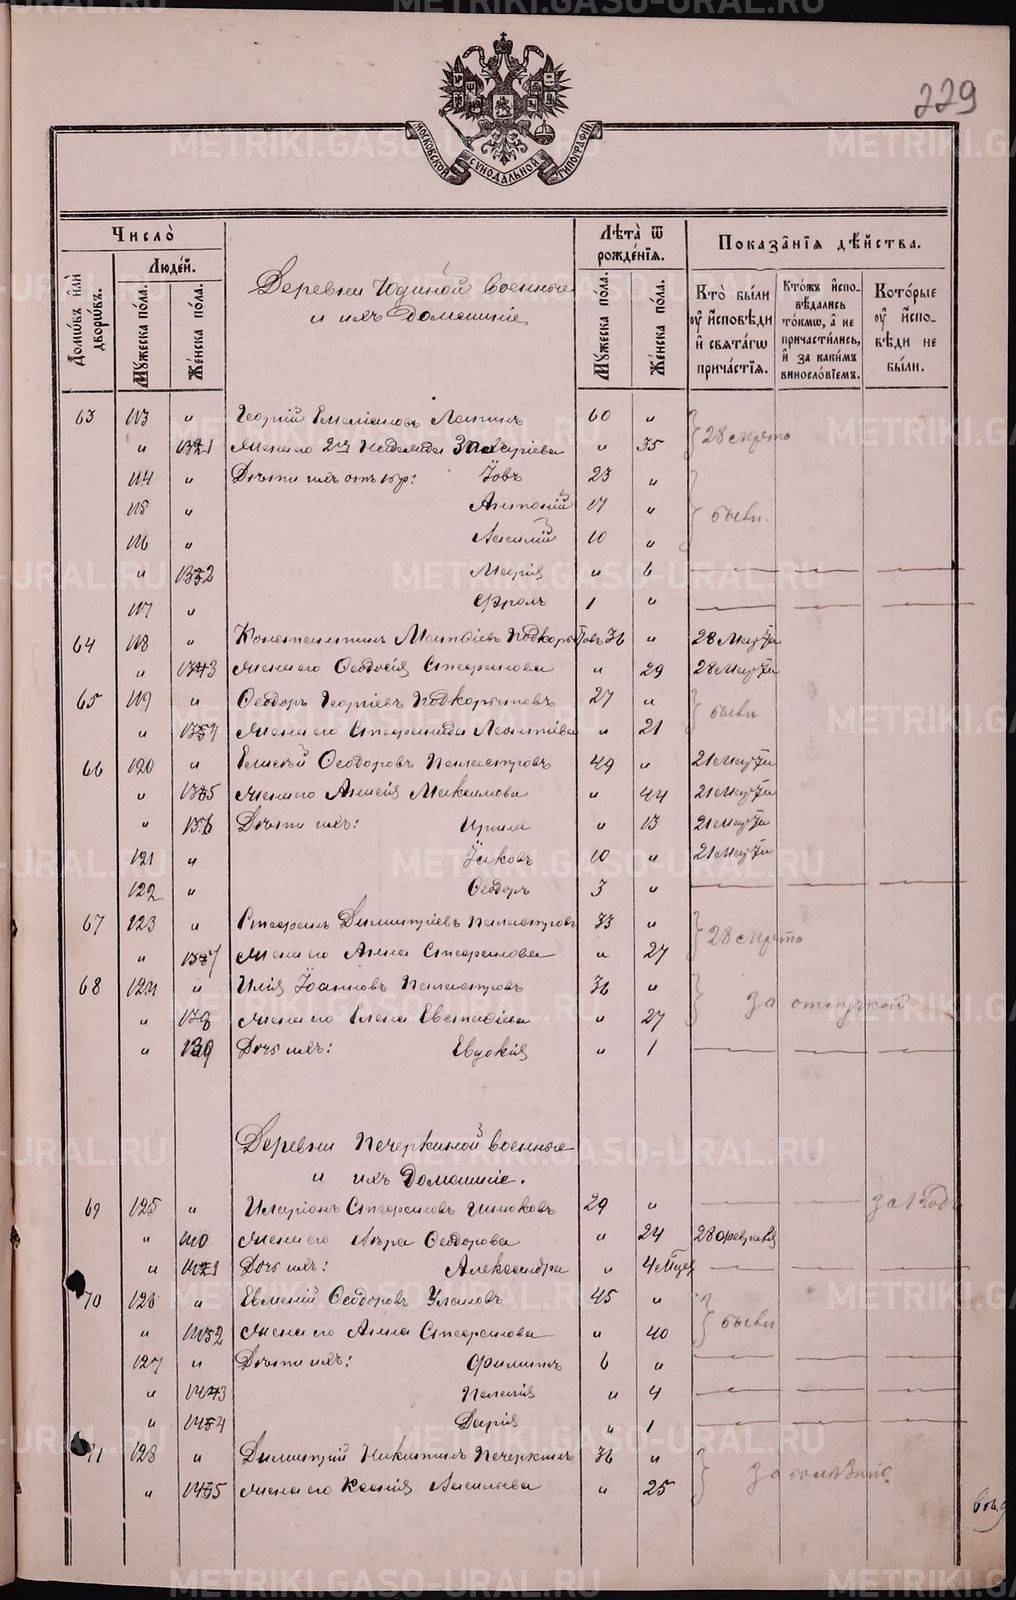 229
МОСКОВСКОЙ СѴНОДАЛЬНОЙ ТИПОГРАФІИ
Число̀
Людéй.
Домѡ́въ и҆лѝ дворѡ́въ.
Мꙋ́жеска по́ла.
Же́нска по́ла.
Деревни Юдиной военные
и ихъ домашніе
Лѣта̀ ѿ рожде́нїѧ.
Мꙋ́жеска по́ла.
Же́нска по́ла.
Показа̑нїѧ дѣ́йства.
Кто̀ бы́ли ᲂу҆ и҆сповѣ́ди и҆ свѧта́гѡ прича́стїѧ.
Кто́жъ и҆сповѣ́дались то́кмѡ, а҆ не причасти́лись, и҆ за каки́мъ виносло́вїемъ.
Кото́рые ᲂу҆ и҆сповѣ́ди не бы́ли.
63 113 " Георгій Емеліановъ Лапинъ 60 " 28 марта
" 131 Жена его 2ая Надежда Захаріева " 35
114 " Дѣти ихъ отъ 1 бр: Іовъ 23 "
115 " Антоній 17 " были
116 " Василій 10 "
" 132 Марія " 6
117 " Фролъ 1 "
64 118 " Константинъ Матѳіевъ Подкорытовъ 36 " 28 Марта
" 133 Жена его Ѳеодосія Стефанова " 29 28 Марта
65 119 " Ѳеодоръ Георгіевъ Подкорытовъ 27 " были
" 134 Жена его Стефанида Леонтіева " 21
66 120 " Елисѣй Ѳеодоровъ Паластровъ 49 " 21 Марта
" 135 Жена его Анисія Максимова " 44 21 Марта
" 136 Дѣти ихъ: Ирина " 13 21 Марта
121 " Іаковъ 10 " 21 Марта
122 " Ѳеодоръ 3 "
67 123 " Стефанъ Димитріевъ Паластровъ 33 " 28 марта
" 137 Жена его Анна Стефанова " 27
68 124 " Илія Іоанновъ Паластровъ 36 " за отлучкой
" 138 Жена его Елена Евстафіева " 27
" 139 Дочь ихъ: Евдокія " 1
Деревни Печеркиной военные
и ихъ домашніе.
69 125 " Иларіонъ Стефановъ 29 " за 1 годъ
" 140 Жена его Вѣра Ѳеодорова " 24 28 февраля
" 141 Дочь ихъ: Александра " 4 мѣсяц
70 126 " Евменій Ѳеодоровъ Улановъ 45 " были
" 142 Жена его Анна Стефанова " 40
127 " Дѣти ихъ: Филиппъ 6 "
" 143 Пелагія " 4
" 144 Дарія " 1
71 128 " Димитрій Никитинъ Печеркинъ 36 " За болѣзнію
" 145 Жена его Ксенія Васильева " 25